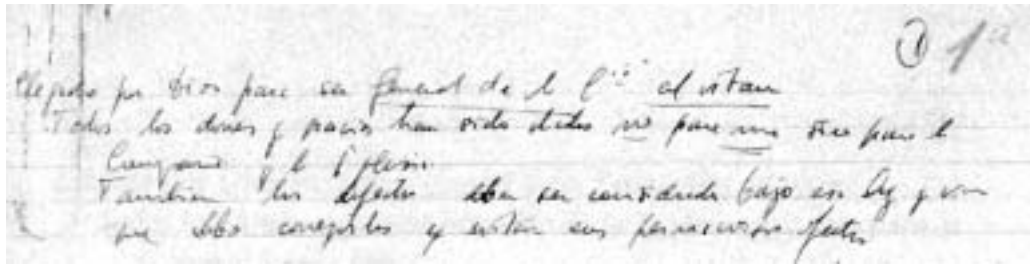 ① 1ª
Elegido por Dios para ser General de la Cª ad vitam
Todos los dones y gracias han sido dados no para mi sino para la
Compañia y la Iglesia
Tambien los defectos deben ser considerados bajo esa luz y
que debo corregirlos y evitar sus perniciosos efectos